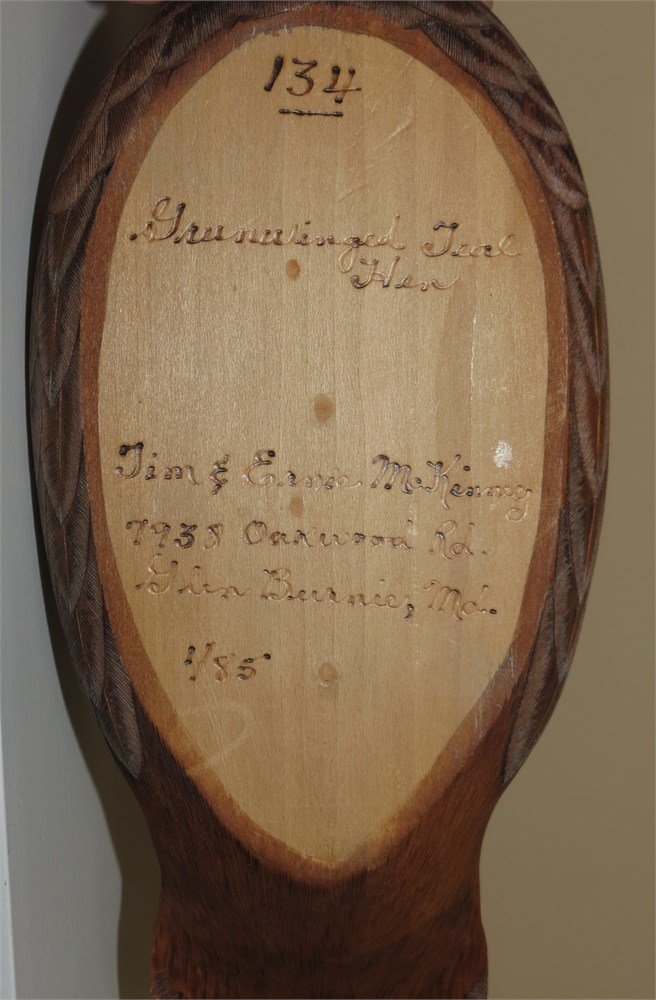 134
Greenwinged Teal
Hen
Jim & Ernie McKenny
7938 Oakwood Rd.
Glen Burnie, Md.
1/85